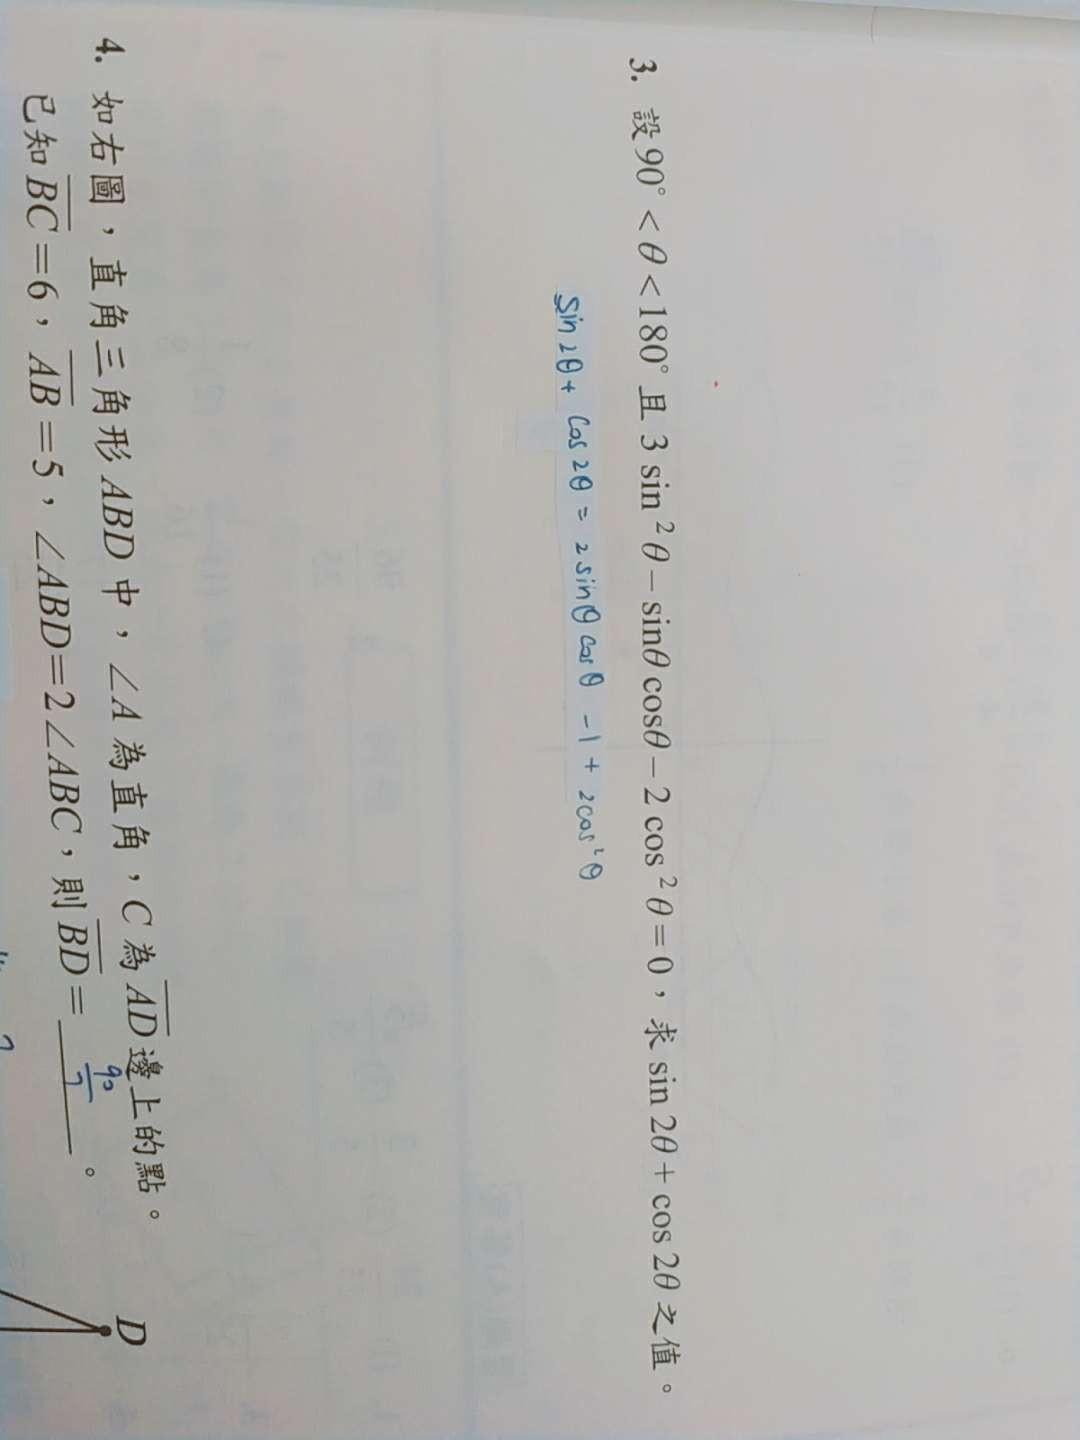 3. 設90°<θ<180°且3 sin²θ−sinθcosθ−2cos²θ=0，求sin 2θ+cos 2θ之值。
sin2θ+ cos2θ = 2sinθcosθ −1 + 2cos²θ
4. 如右圖，直角三角形ABD中，∠A為直角，C為AD邊上的點。
已知BC=6，AB=5，∠ABD=2∠ABC，則BD= 90/7 。
D